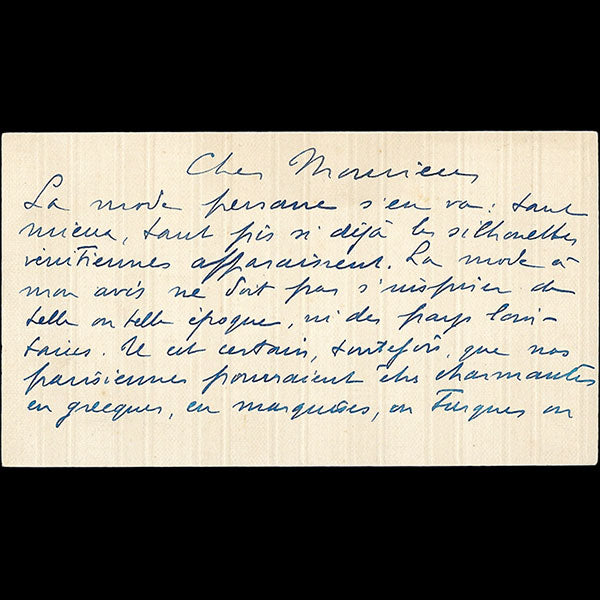 Cher Monsieur
La mode persane s'en va : tant
mieux, tant pis si déjà les silhouettes
vénitiennes apparaissent. La mode à
mon avis ne doit pas s'inspirer de
telle ou telle époque, ni des pays loin-
tains. Il est certain, toutefois, que nos
parisiennes pourraient être charmantes
en grecques, en marquises, en Turques ou